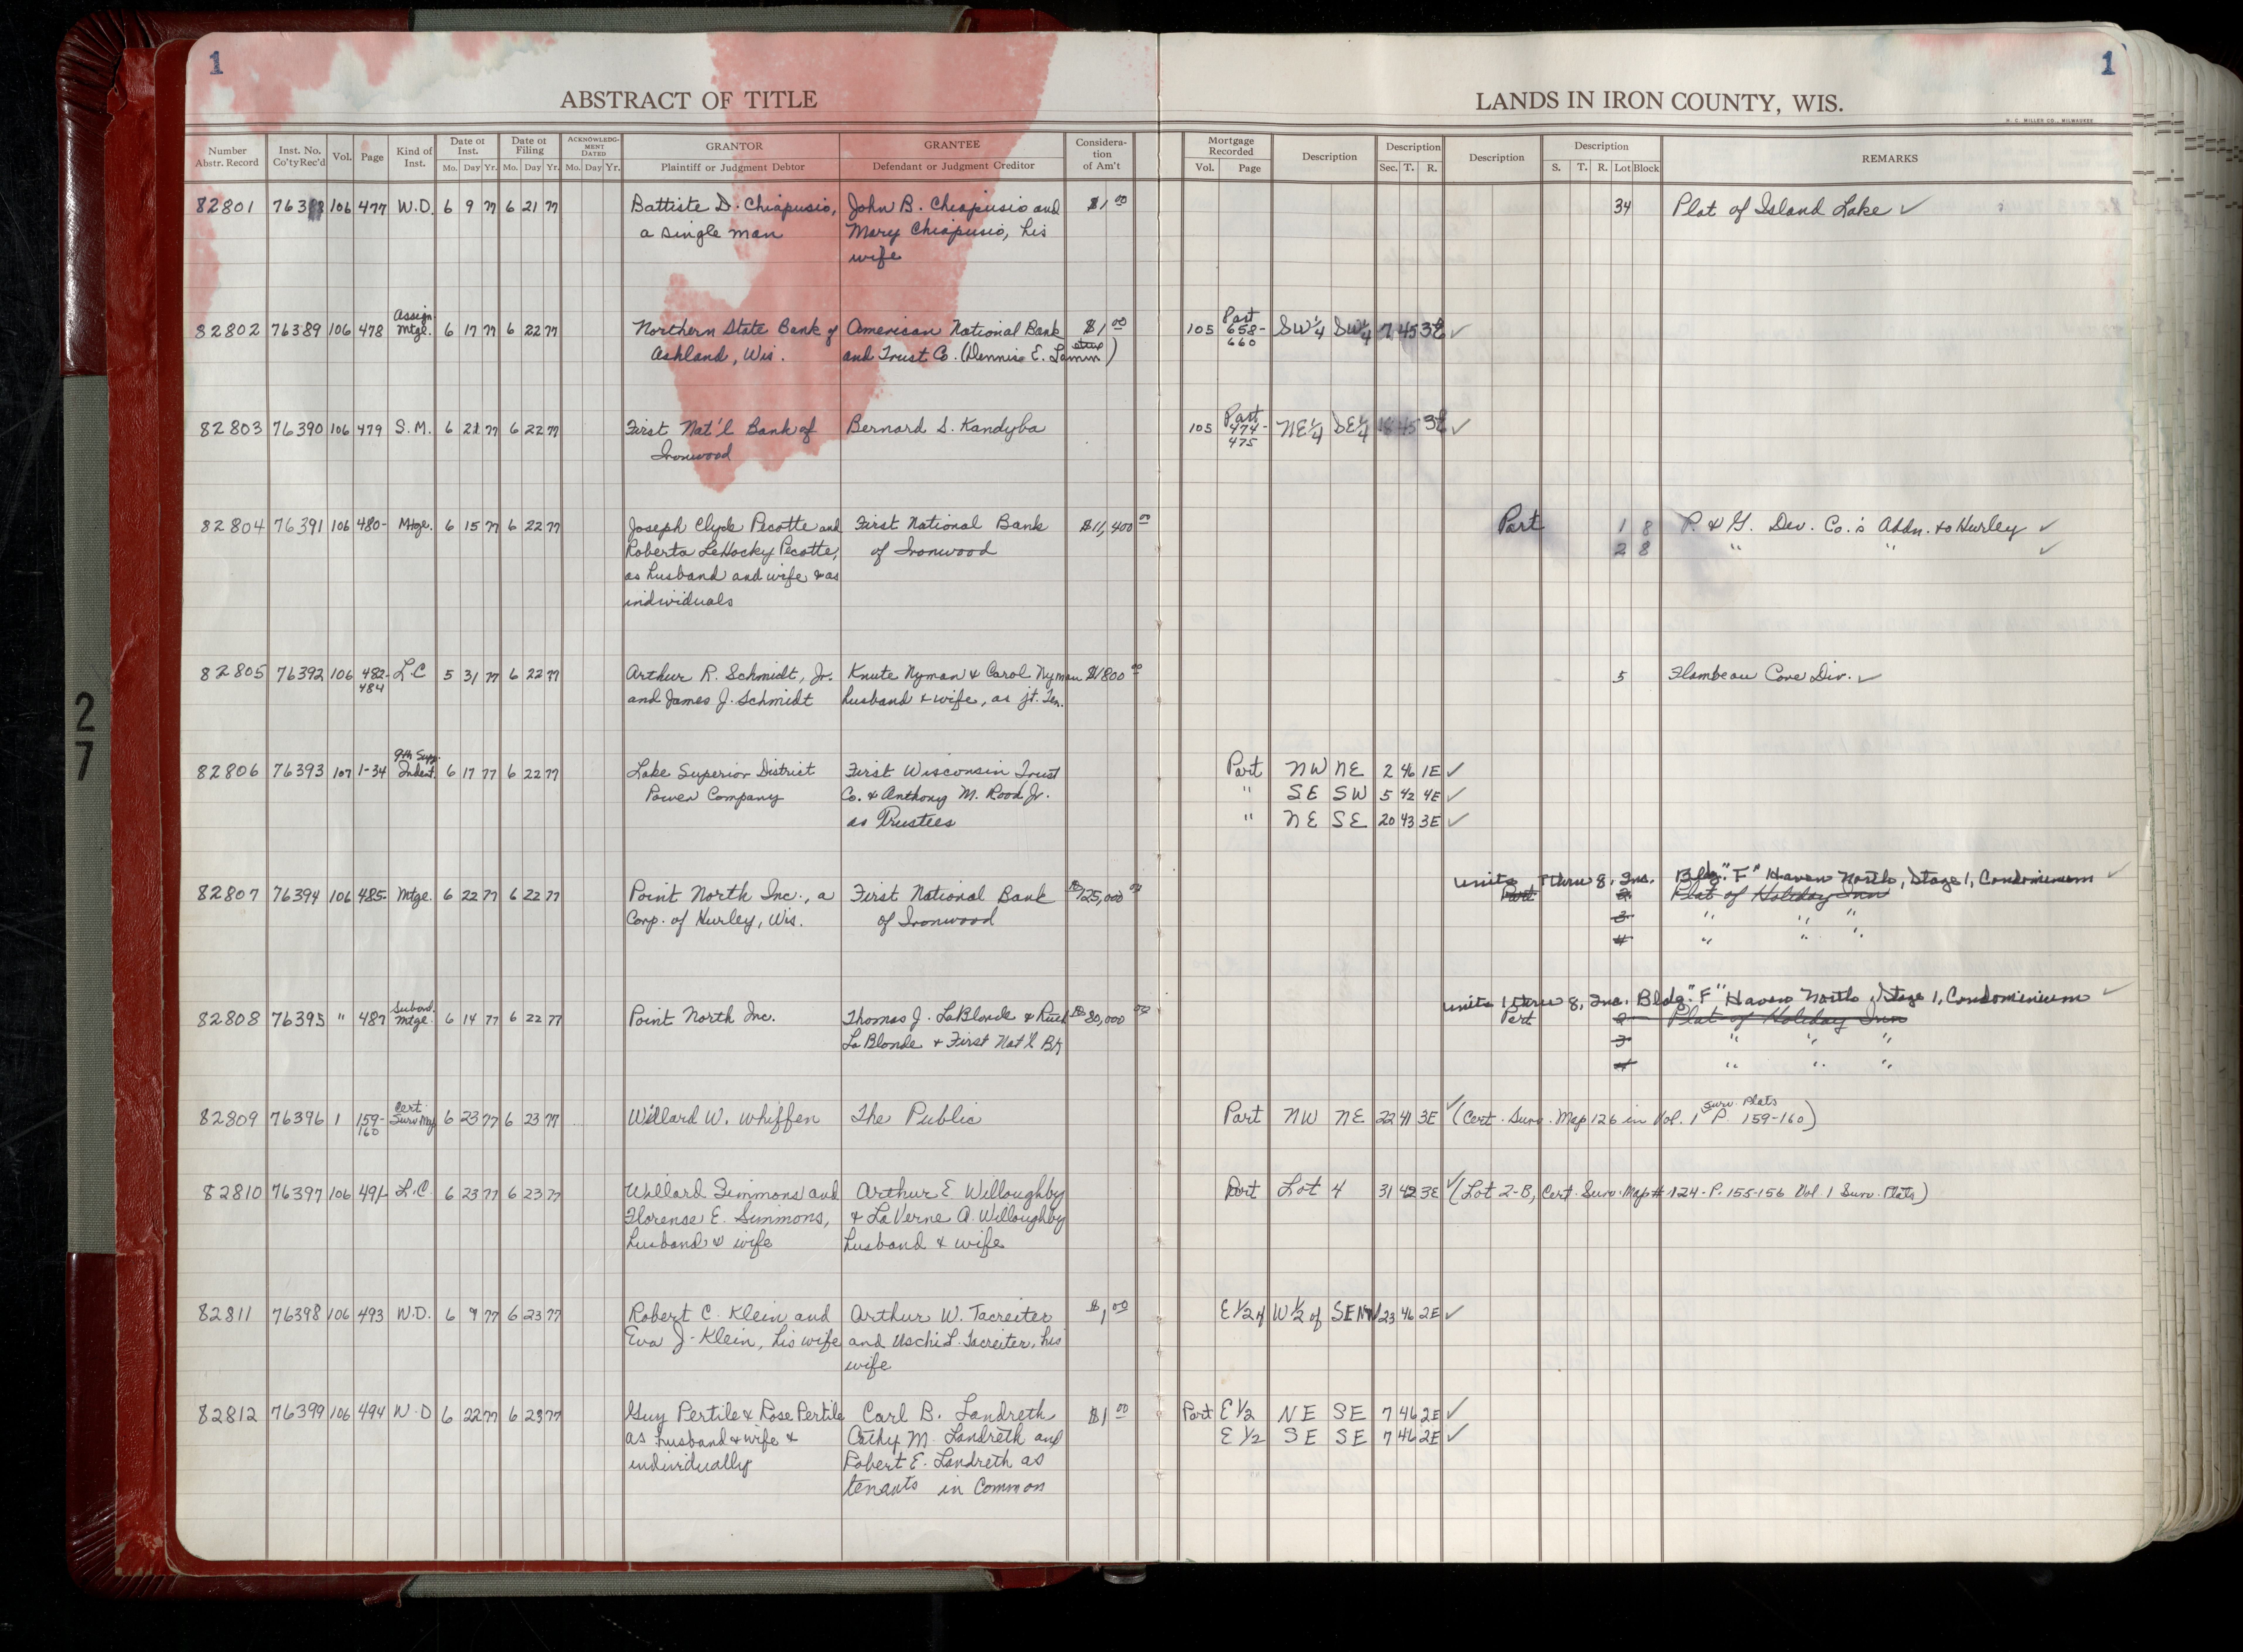 1
1
ABSTRACT OF TITLE
LANDS IN IRON COUNTY, WIS.
H. C. MILLER CO., MILWAUKEE
Number Abstr. Record | Inst. No. Co'ty Rec'd | Vol. | Page | Kind of Inst. | Date of Inst. Mo. Day Yr. | Date of Filing Mo. Day Yr. | ACKNOWLEDGMENT DATED Mo. Day Yr. | GRANTOR Plaintiff or Judgment Debtor | GRANTEE Defendant or Judgment Creditor | Consideration of Am't | Mortgage Recorded Vol. Page | Description | Description Sec. T. R. | Description | Description S. T. R. Lot Block | REMARKS
82801 76388 106 477 W.D. 6 9 77 6 21 77 Battiste D. Chiapusio, John B. Chiapusio and $1 00 34 Plat of Island Lake ✓
a single man Mary Chiapusio, his
wife
Assign. Part
82802 76389 106 478 Mtge. 6 17 77 6 22 77 Northern State Bank of American National Bank $1 00 105 658- SW 1/4 SW 1/4 7 45 3E ✓
Ashland, Wis. and Trust Co. (Dennis E. ) 660
Part
82803 76390 106 479 S.M. 6 21 77 6 22 77 First Nat'l Bank of Bernard S. Kandyba 105 474- NE 1/4 SE 1/4 18 45 3E ✓
Ironwood 475
82804 76391 106 480- Mtge. 6 15 77 6 22 77 Joseph Clyde Pecotte and First National Bank $11,400 00 Part 1 8 P. & G. Dev. Co.'s Addn. to Hurley ✓
Roberta LeHocky Pecotte, of Ironwood 2 8 " " ✓
as husband and wife & as
individuals
82805 76392 106 482- L C 5 31 77 6 22 77 Arthur R. Schmidt, Jr. Knute Nyman & Carol Nyman $1800 00 5 Flambeau Cove Div. ✓
484 and James J. Schmidt husband & wife, as jt. Ten.
9th Supp.
82806 76393 107 1-34 Indent. 6 17 77 6 22 77 Lake Superior District First Wisconsin Trust Part NW NE 2 46 1E ✓
Power Company Co. & Anthony M. Rood Jr. " SE SW 5 42 4E ✓
as Trustees " NE SE 20 43 3E ✓
Units 1 thru 8, Inc. Bldg. "F" Haven North, Stage 1, Condominium ✓
82807 76394 106 485- Mtge. 6 22 77 6 22 77 Point North Inc., a First National Bank Part 2 Plat of Holiday Inn
Corp. of Hurley, Wis. of Ironwood 3 " " "
4 " " "
Subord. Units 1 thru 8, Inc. Bldg. "F" Haven North, Stage 1, Condominium ✓
82808 76395 " 487 Mtge. 6 14 77 6 22 77 Point North Inc. Thomas J. LaBlonde & Ruth $80,000 00 Part 2 Plat of Holiday Inn
LaBlonde & First Nat'l Bk 3 " " "
4 " " "
Cert. Surv. Plats
82809 76396 1 159- Surv Map 6 23 77 6 23 77 Willard W. Whiffen The Public Part NW NE 22 41 3E ✓ (Cert. Surv. Map 126 in Vol. 1 P. 159-160)
160
82810 76397 106 491- L.C. 6 23 77 6 23 77 Willard Simmons and Arthur E Willoughby Part Lot 4 31 42 3E ✓ (Lot 2-B, Cert. Surv. Map # 124 - P. 155-156 Vol 1 Surv. Plats)
Florense E. Simmons, & LaVerne A. Willoughby
husband & wife husband & wife
82811 76398 106 493 W.D. 6 9 77 6 23 77 Robert C. Klein and Arthur W. Tacreiter $1 00 E 1/2 of W 1/2 of SENW 23 46 2E ✓
Eva J. Klein, his wife and Uschi L. Tacreiter, his
wife
82812 76399 106 494 W.D 6 22 77 6 23 77 Guy Pertile & Rose Pertile Carl B. Landreth $1 00 Part E 1/2 NE SE 7 46 2E ✓
as husband & wife & Cathy M. Landreth and E 1/2 SE SE 7 46 2E ✓
individually Robert E. Landreth as
tenants in Common
27